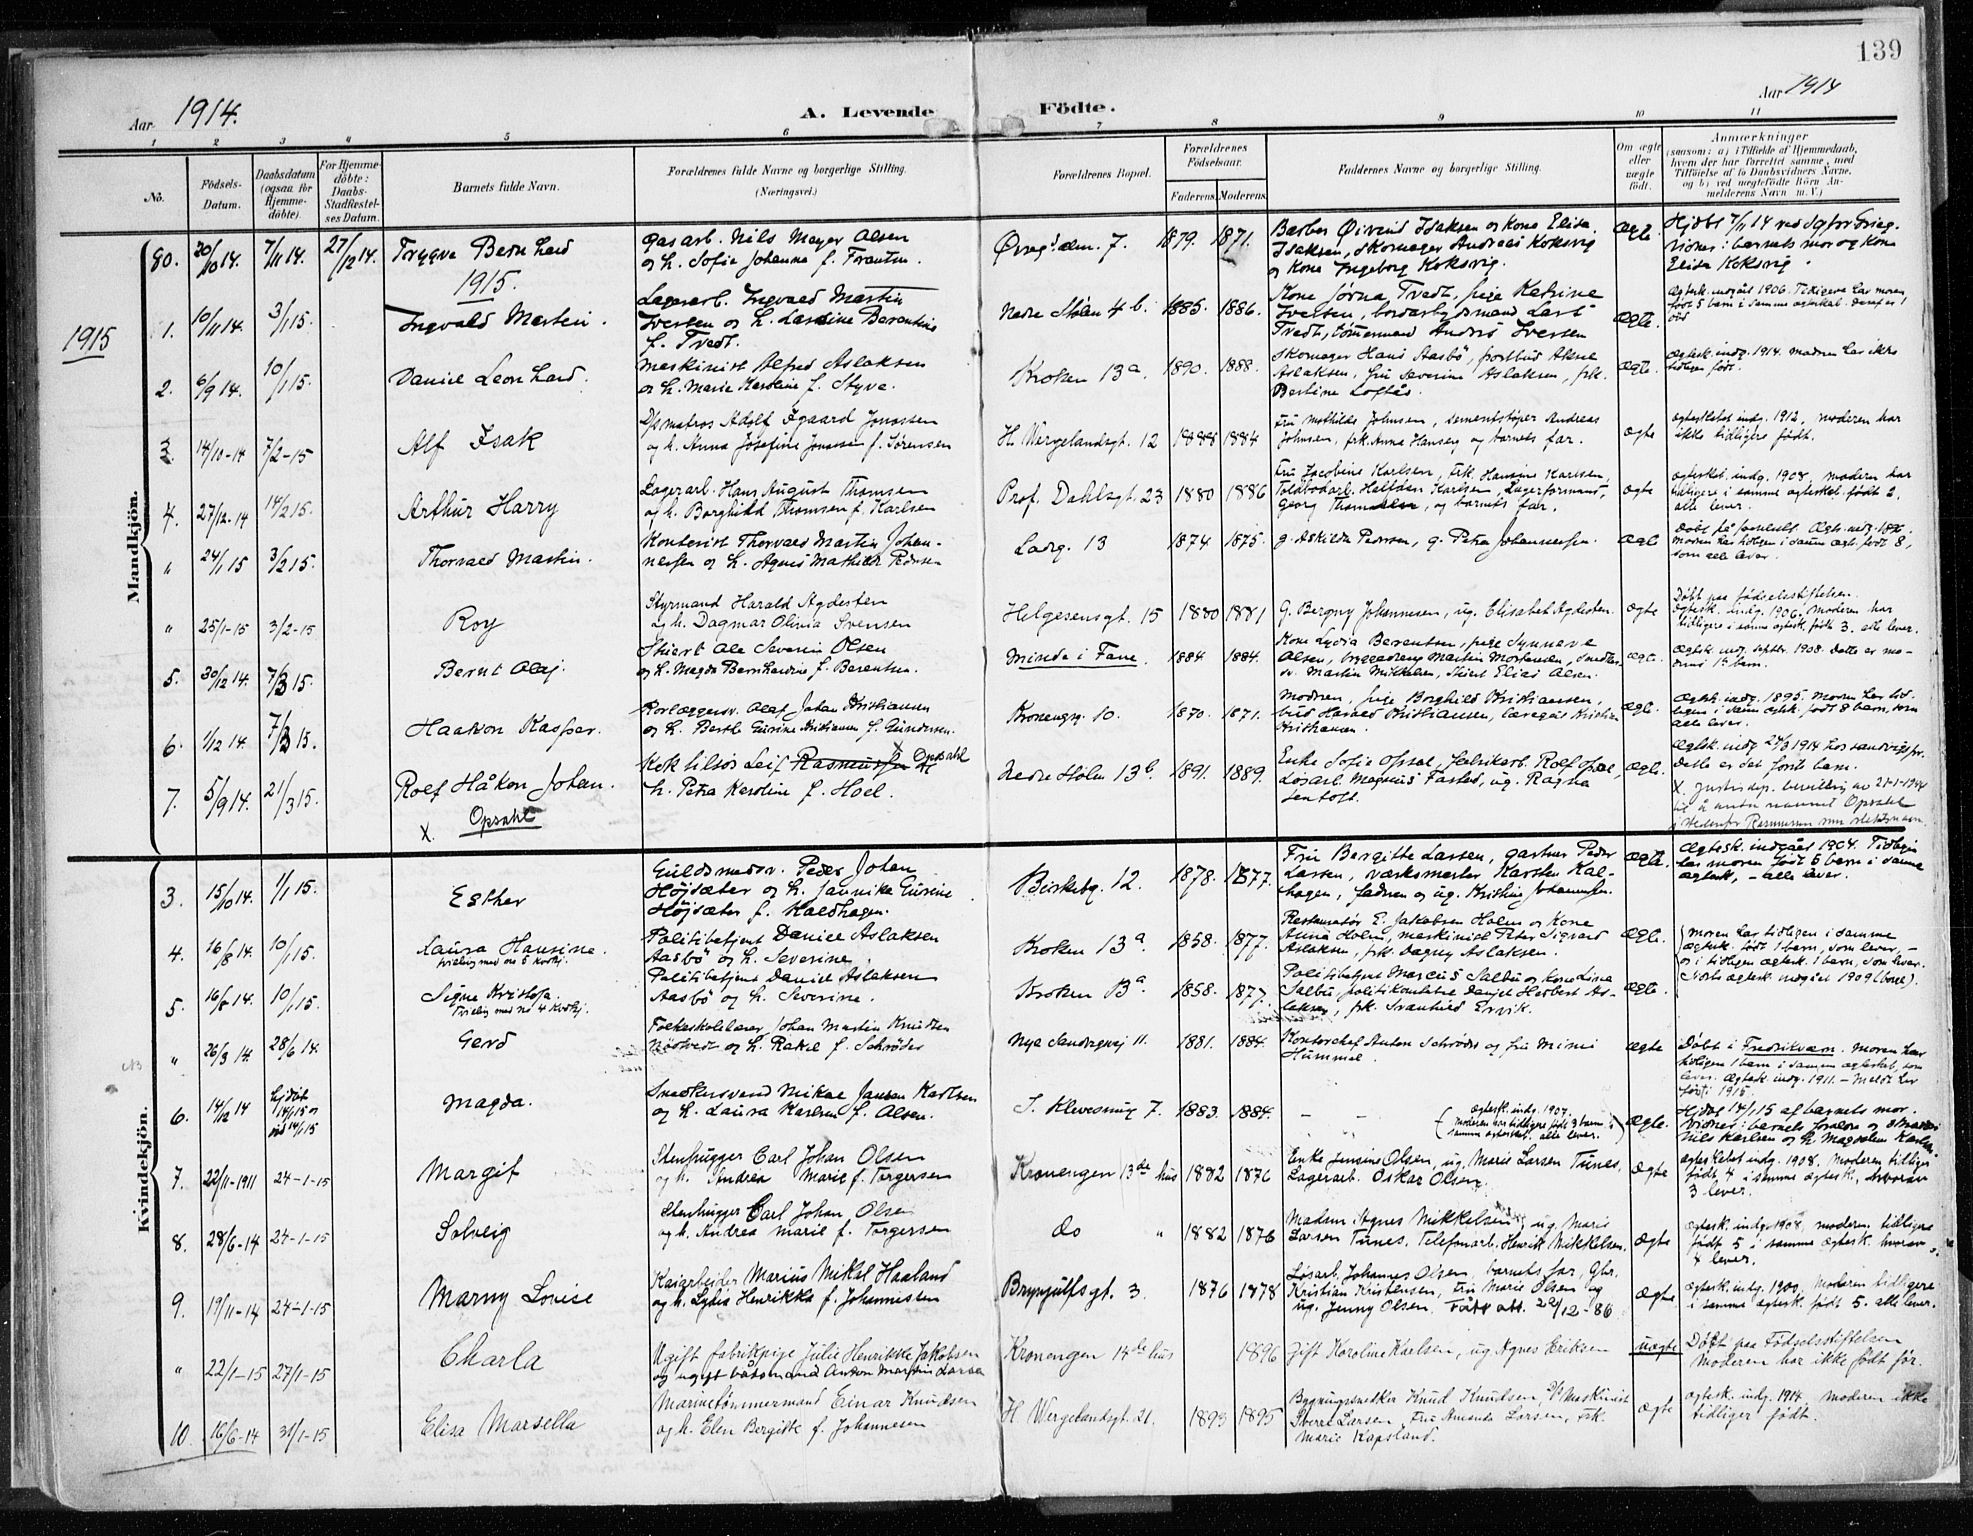 139
Aar 1914.
A. Levende Födte.
Aar 1914
1 2 3 4 5 6 7 8 9 10 11
No.
Födsels-
Datum.
Daabsdatum
(ogsaa for
Hjemme-
döbte).
For Hjemme-
döbte:
Daabs-
Stadfæstel-
ses Datum.
Barnets fulde Navn.
Forældrenes fulde Navne og borgerlige Stilling.
(Næringsvei.)
Forældrenes Bopæl.
Forældrenes
Födselsaar.
Faderens. Moderens.
Faddernes Navne og borgerlige Stilling.
Om ægte
eller
uægte
født.
Anmærkninger
(saasom: a) i Tilfælde af Hjemmedaab,
hvem der har forrettet samme, med
Tilföielse af to Daabsvidners Navne,
og b) ved uegtefödte Börn An-
melderens Navn m. V.)
Mandkjön.
80. 30/10 14. 7/11 14. 27/12 14.
Trygve Bernhard
Gasarb. Nils Meyer Olsen
og h. Sofie Johanne f. Berntsen.
7. 1879. 1871.
Barber Øivind Isaksen og Kone Elisa
Isaksen, Skomager Andreas Koksvig
og Kone Ingeborg Koksvig.
Ægte
Hjdbt 7/11 14 ved
barnets mor og Kone
Elisa Koksvig.
1915.
1915
1. 10/11 14. 3/1 15.
Ingvald Martin.
Lagerarb. Ingvald Martin
Iversen og h. Berentine
f. Tvedt.
Nedre Stölen 4 b. 1885. 1886.
Kone Jørna Tvedt, pige Katrine
Iversen, Lars
Tvedt, tömmermand Andrs Iversen
Ægte.
Ægtesk. indgået 1906. Tidligere har moren
født 5 barn i samme ægteskab. Deraf er 1
död
2. 6/9 14. 10/1 15.
Daniel Leonhard.
Maskinist Alfred Aslaksen
og h. Marie Karoline f. Styve.
Kroken 13a. 1890. 1888.
Skomager Hans Aasbö, postbud
Aslaksen, fru Severine Aslaksen, frk.
Bertine Loftås.
ægte.
Ægtesk. indg. 1914. Modren har ikke
tidligere født.
3. 14/10-14 7/2-15
Alf Isak
D/s matros Adolf Egaard Jonassen
og h. Anna Josefine Jonassen f. Sørensen
H. Wergelandsgt. 12 1888 1884
Fru Mathilde Johnsen, cementstøper Andreas
Johnsen, frk. Anna Hansen og barnets far.
ægte
ægteskabet indg. 1912, moderen har
ikke tidligere født.
4. 27/12-14 14/2 15.
Arthur Harry
Lagerarb. Hans August Thomsen
og h. Borghild Thomsen f. Karlsen
Prof. Dahlsgt. 23 1880 1886
Fru Jacobine Karlsen, frk. Hansine Karlsen,
Toldbodarb. Halfdan Karlsen, Lagerformand,
Georg Thomsen, og barnets far.
ægte
ægteskab. indg. 1908. moderen har
tidligere i samme ægteskab. født 2.
alle lever.
" 24/1 15 3/2 15.
Thorvald Martin.
Kontorist Thorvald Martin Johan-
nessen og h. Agnes Mathilde Pedersen
Ladeg. 13 1874 1875.
g. Askilda Pedersen, g. Petra Johannessen.
Ægte
moren har tidligere i samme ægt. født 8,
som alle lever.
" 25/1-15 3/2-15
Roy
Styrmand Harald Agdesten
og h. Dagmar Olivia Svensen
Helgesensgt. 15 1880 1881
G. Bergny Johannesen, ug. Elisabet Agdesten.
ægte
Døbt paa fødselsstiftelsen.
ægtesk. indg. 1906. moderen har
tidligere i samme ægtesk. født 3. alle lever.
5. 30/12 14. 7/3 15.
Bernt Olaj.
Ole Severin Olsen
og h. Magda Bernhardine f. Berentsen.
Minde i Fane. 1884. 1884.
Kone Lydia Berentsen, pige Synneve
Olsen, Martin Mortensen,
Martin Mikkelsen, Elias Olsen.
ægte.
Ægtesk. indg. septbr. 1908. Dette er mo-
drens 1ste barn.
6. 1/12 14. 7/3 15.
Haakon Kasper.
Olaf Johan Kristiansen
og h. Berthe Gurine Kristiansen f. Gundersen.
Kronengg. 10. 1870. 1871.
Modren, pige Borghild Kristiansen,
bud Harald Kristiansen,
Kristiansen.
Ægte.
Ægtesk. indg. 1895. Moren har tid-
ligere i samme ægtesk. født 8 barn, som
alle lever.
7. 5/9 14. 21/3 15.
Rolf Håkon Johan.
x. Opsahl
Kok tilsjös Leif Rasmussen x Opsahl
og h. Petra Karoline f. Hoel.
Nedre Stölen 13b. 1891. 1889.
Enke Sofie Opsal, Fabrikarb. Rolf Opsal,
Løsarb. Magnus Farstad, ug. Ragna
Ægte.
Ægtesk. indg. 1914 hos
Dette er det först barn.
x. Justisdep. bevilling av 21-1-1944
til å anta navnet Opsahl
i stedenfor Rasmussen som slektsnavn.
Kvindekjön.
3. 15/10 14. 1/1 15.
Esther
Guldsmedsv. Peder Johan
Höjsæter og h. Jannike Gurine
Höjsæter f. Kaldhagen.
Birkebg. 12. 1878. 1877.
Fru Bergitte Larsen, gartner Peder
Larsen, værksmester Karsten Kal-
hagen, fadren og ug. Kristine Johannessen.
Ægte.
Ægtesk. indgået 1904. Tidligere
har moren født 5 barn i samme
ægtesk. - alle lever.
4. 16/8 14. 10/1 15.
Laura Hansine.
Tvilling med no 5 kvdkj.
Politibetjent Daniel Aslaksen
Aasbö og h. Severine.
Kroken 13a. 1858. 1877.
Restauratør E. Jakobsen Holm og Kone
Anna Holm, maskinist Peter Sigvard
Aslaksen, frk. Dagny Aslaksen.
Ægte.
moren har tidligere i samme
ægtesk. født 1 barn, som lever, -
og i tidligere ægtesk. 1 barn, som lever.
Sidste ægtesk. indgået 1909
5. 16/8 14. 10/1 15.
Signe Kristofa.
Tvilling med no 4 kvdkj.
Politibetjent Daniel Aslaksen
Aasbö og h. Severine.
Kroken 13a. 1858. 1877.
Politibetjent Marcus Salbu og Kone Line
Salbu, politikonstabel Daniel Herbert As-
laksen, frk. Svanhild Ervik.
ægte.
" 26/3 14 28/6 14.
Gerd
Folkeskolelærer Johan Martin Knudsen
og h. Rakel f. Schrøder
Nye Sandvigsvej 11. 1881. 1884.
Kontorchef Anton Schröder og fru Mimi
Hummel.
ægte
Döbt i Fredriksværn. moren har
tidligere 1 barn i samme ægteskab, som
lever. Ægtesk. indg. 1911. - Meldt her
först 1915.
6. 14/12 14 hjdöbt
14/1 15
Magda.
Snedkersvend Mikal Jansen Karlsen
og h. Laura Karlsen f. Olsen.
S. Klevesmug 7. 1883. 1884.
- -
(Ægtesk. indg. 1907.
moderen har tidligere født 3 barn i
samme ægteskab. alle lever.)
Ægte.
Hjdöbt 14/1 15 af barnets mor.
Vidner: barnets forældre og
Nils Karlsen og h. Magdalene Karlsen.
7. 22/11-1911 24-1-15
Margit
Stenhugger Carl Johan Olsen
og h. Andrea Marie f. Torgersen
Kronengen 13de hus 1882 1876
Enke Jensine Olsen, ug. Marie Larsen Tunes,
Lagerarb. Oskar Olsen.
ægte
ægteskabet indg. 1908. moderen tidligere
født 4 i samme ægtesk. hvorav
3 lever.
8. 28/6-14 24-1-15
Solveig
Stenhugger Carl Johan Olsen
og h. Andrea Marie f. Torgersen
do " 1882 1876
Madam Agnes Mikkelsen, ug. Marie
Larsen Tunes. Telefonarb. Henrik Mikkelsen.
ægte
ægtesk. indg. 1908. moderen tidligere
født 5 i samme ægtesk. hvorav
4 lever.
9. 19/11-14 24-1-15
Marny Lovise
Kaiarbejder Marius Mikal Haaland
og h. Lydia Henrikke f. Johannessen
Brynjulfsgt. 3. 1876 1878
Løsarb. Johannes Olsen, barnets far, Gbr.
Kristian Kristensen, Fru Marie Olsen og
ug. Jenny Olsen. Fått att. 22/12-86
ægte
ægtesk. indg. 1900. moderen tidligere
i samme ægtesk. født 5. alle lever.
" 22/1-15 27/1-15
Charla
Ugift fabrikpige Julie Henrikke Jakobsen
og ugift båtsmand Anton Martin Larsen
Kronengen 14de hus 1896
Gift Karoline Karlsen, ug. Agnes Eriksen
uægte
Döbt paa Fødselsstiftelsen
Moderen har ikke født før.
10. 16/6-14 31/1-15
Elisa Marsella
Marinetömmermand Einar Knudsen
og h. Elen Bergitte f. Johannesen
H. Wergelandsgt. 21. 1893 1895
Bygningssnedker Knud Knudsen, D/s Maskinist
Sverel Larsen, Fru Amanda Larsen, Frk.
Marie Kapsland.
ægte
ægtesk. indg. 1914. moderen ikke
tidligere født.